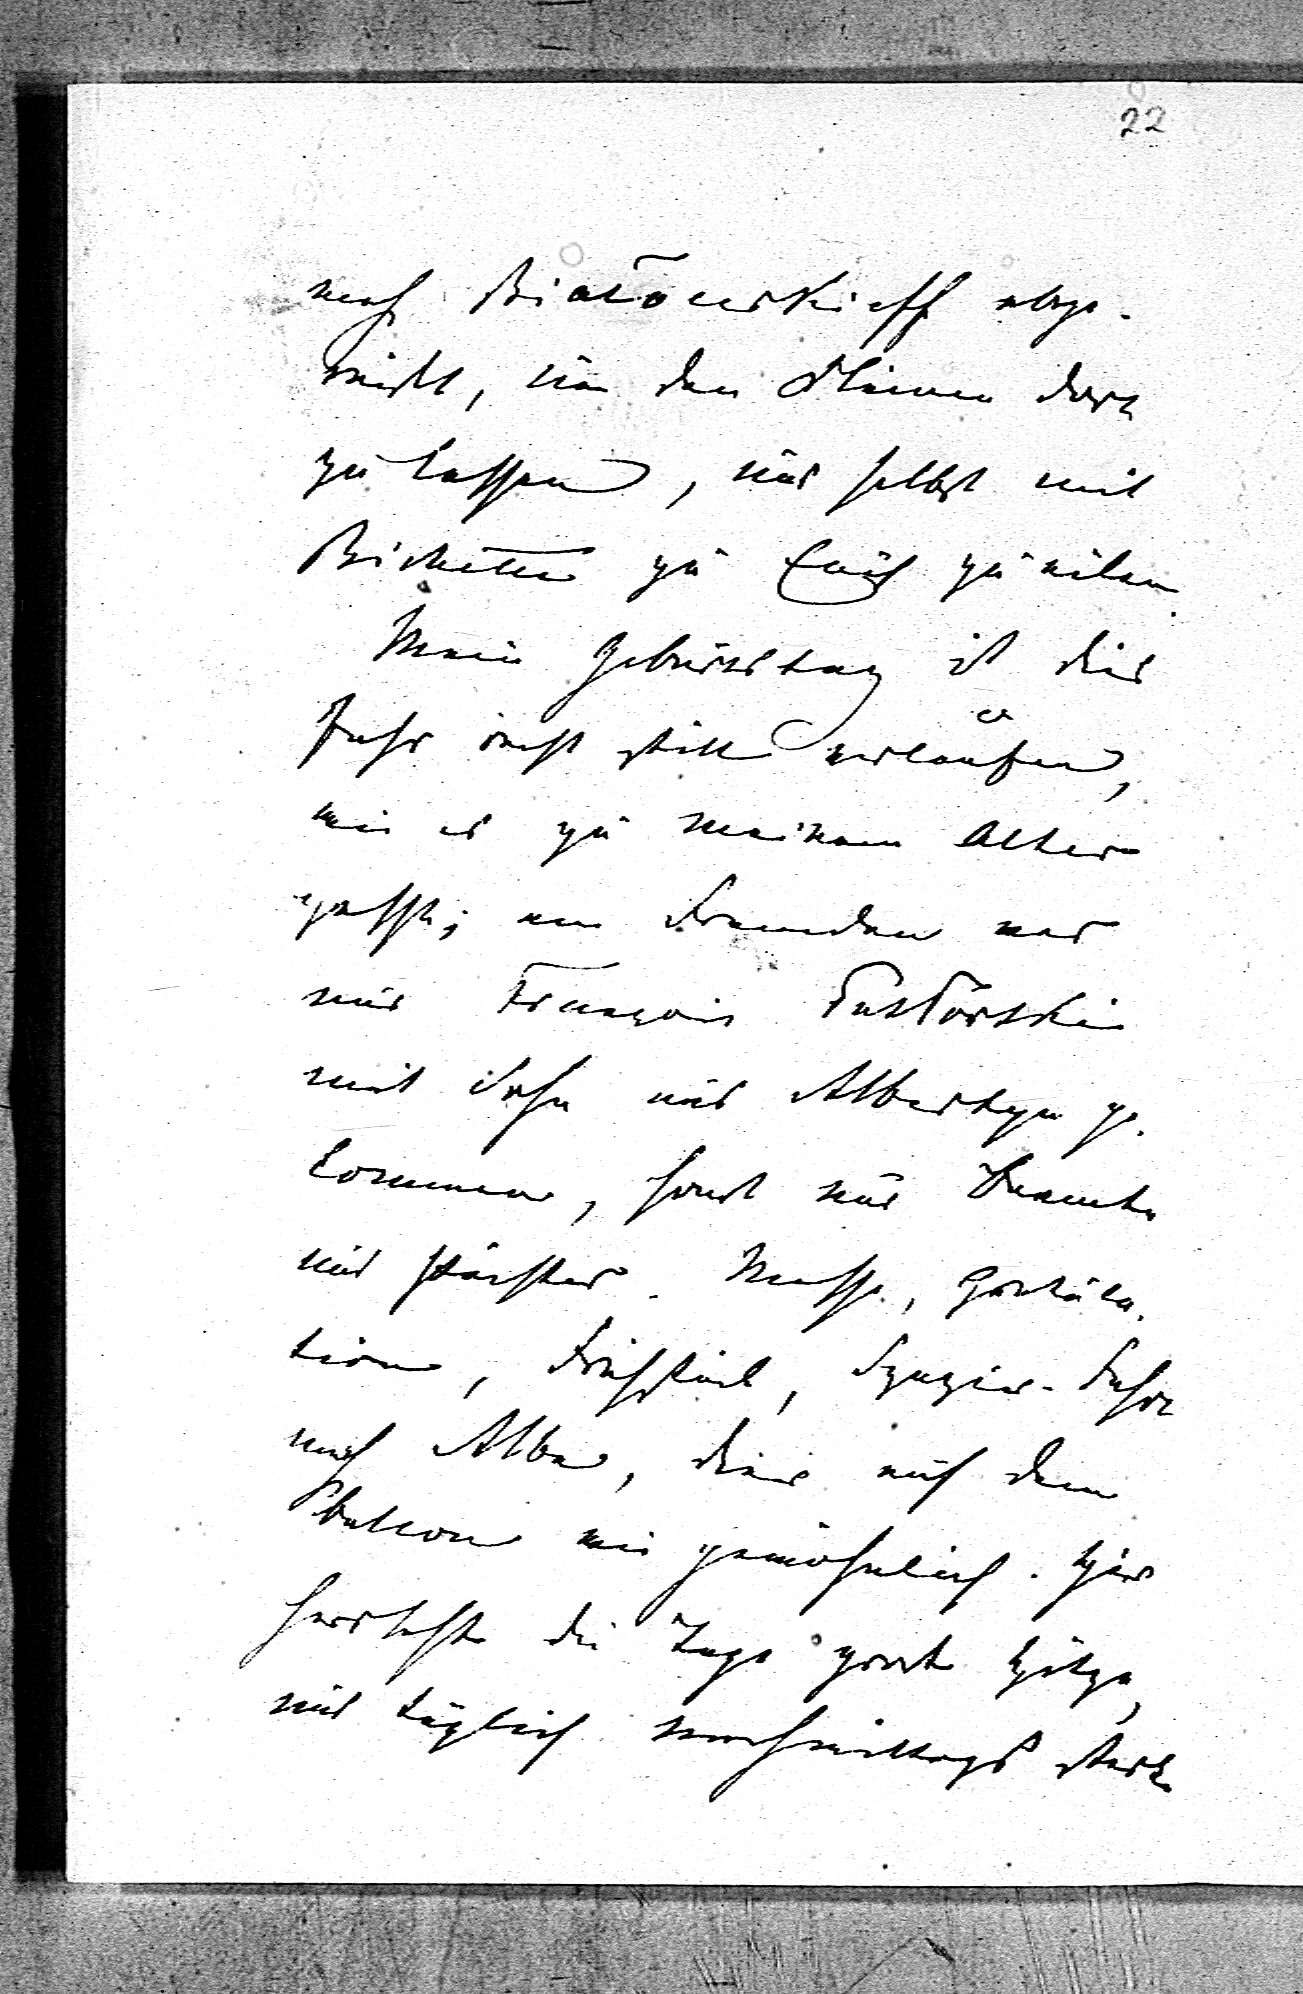 22
nach Białocerkieff abge-
reist, um den Kleinen dort
zu lassen, und selbst mit
Bichette zu Euch zu eilen.
Mein Geburtstag ist dies
Jahr recht still verlaufen,
wie es zu meinem Alter
passt; von Fremden war
nur François
mit Sohn aus Albertyn ge-
kommen, sonst nur Beamte
und Pächter. Messe, Gratula-
tion, Frühstück, Spazier-Fahrt
nach Alba, Diner auf dem
Balcon wie gewöhnlich. Hier
herrschte die Tage grosse Hitze,
und täglich nachmittags starke